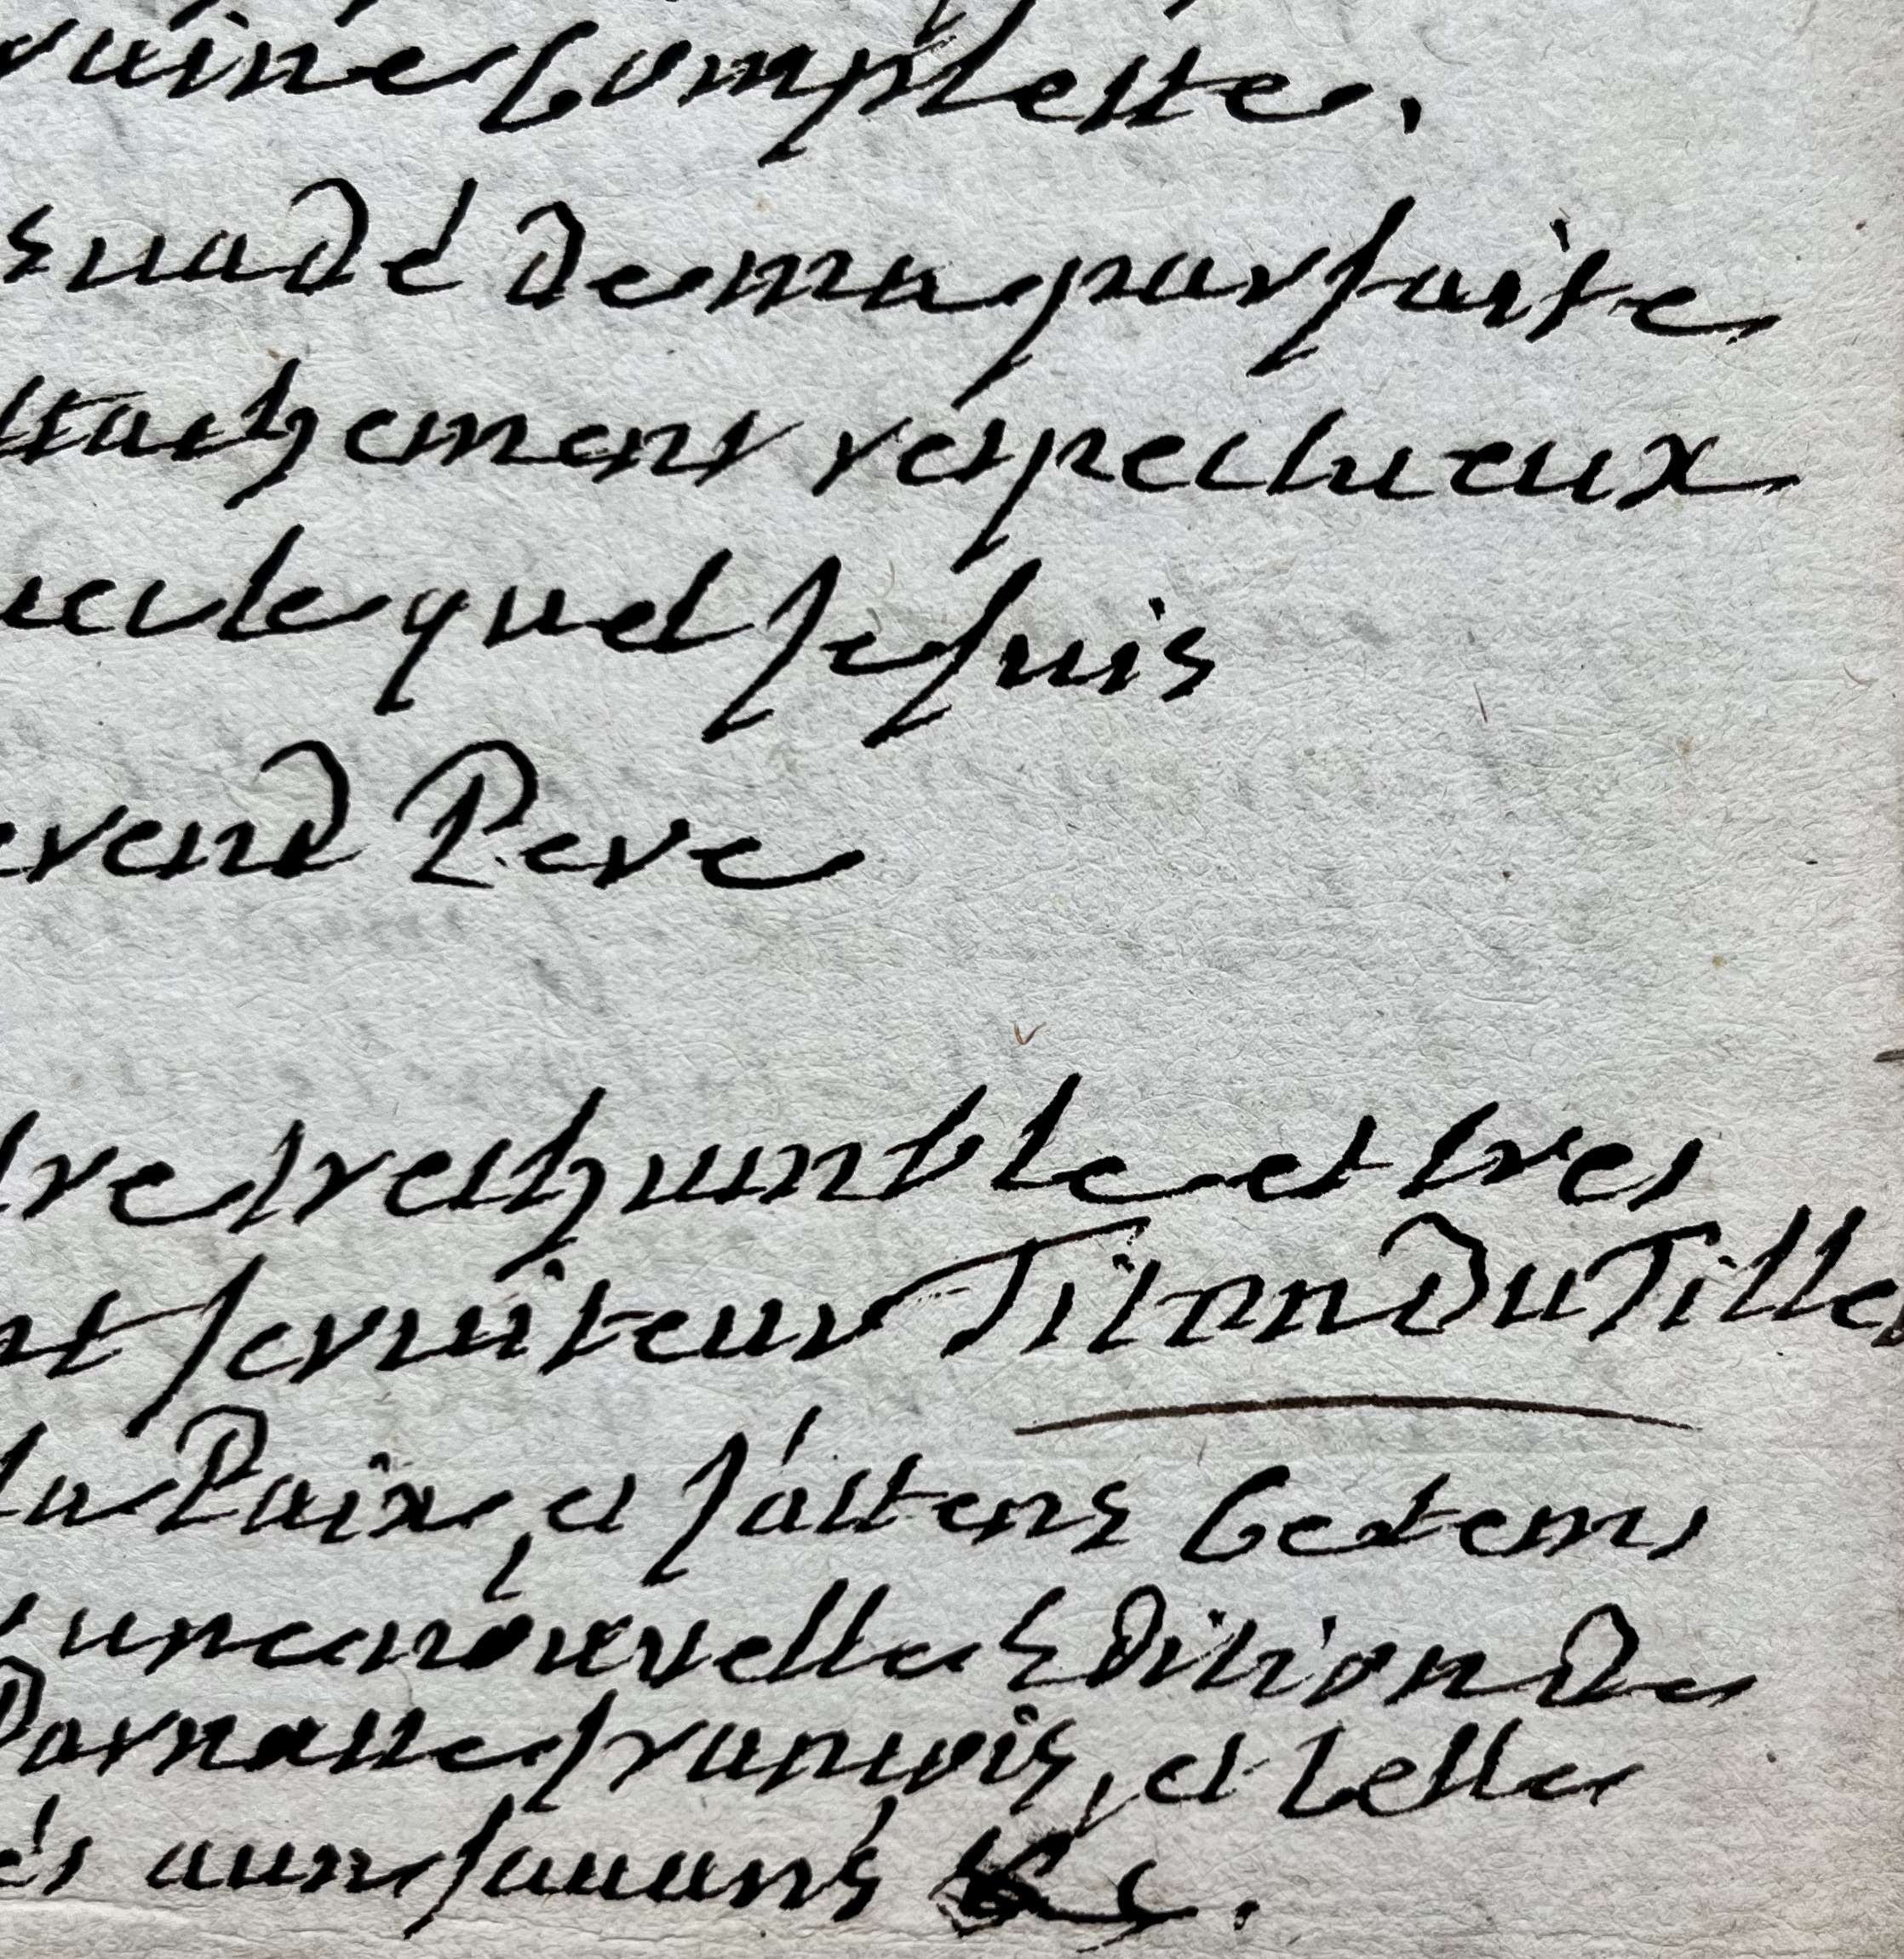 ruine Complette.
suadé de ma parfaite
ttachement respectueux
lequel Je suis
erend Pere
tre tres humble et tres
nt serviteur Titon Du Tille
la Paix, et J'attens Ce tems
une nouvelle Edition de
Parnasse françois, et celle
és aux sauans &c.